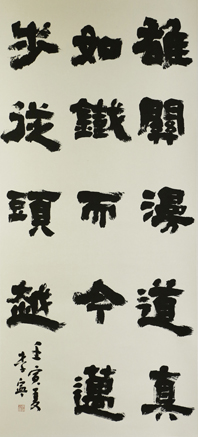 雄關漫道真
如鐵而今邁
步從頭越
壬寅夏
李寧